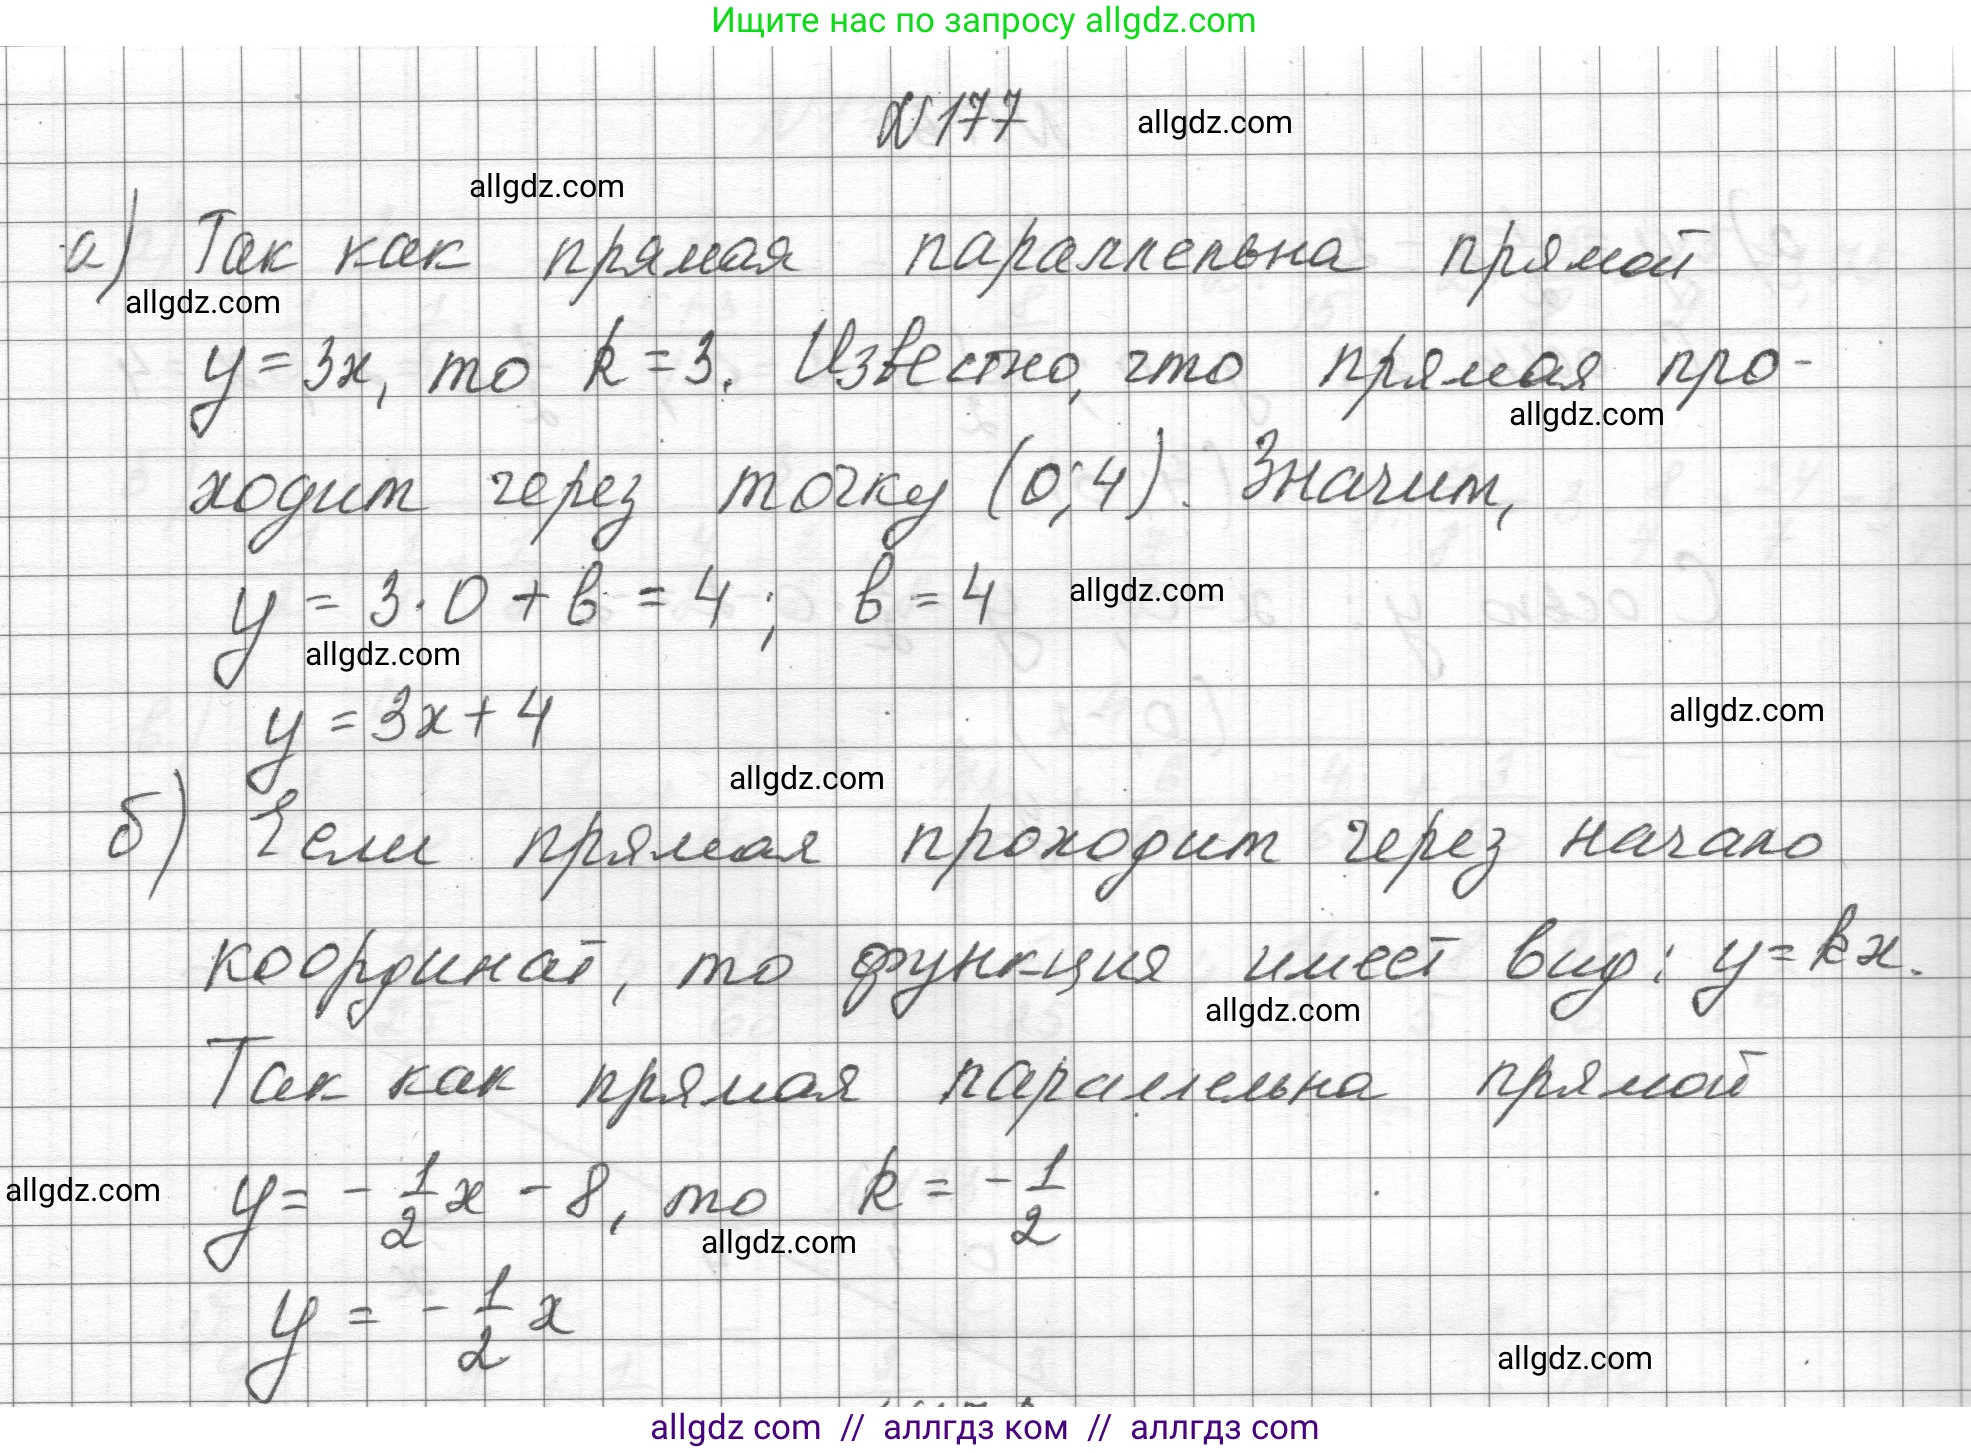 Ищите нас по запросу allgdz.com
№177
allgdz.com
allgdz.com
а) Так как прямая параллельна прямой
allgdz.com
y = 3x, то k = 3. Известно, что прямая про-
allgdz.com
ходит через точку (0; 4). Значит,
y = 3 · 0 + b = 4; b = 4
allgdz.com
allgdz.com
y = 3x + 4
allgdz.com
allgdz.com
б) Если прямая проходит через начало
координат, то функция имеет вид: y = kx.
allgdz.com
Так как прямая параллельна прямой
allgdz.com
y = - 1/2 x - 8, то k = - 1/2
allgdz.com
y = - 1/2 x
allgdz.com
allgdz com // аллгдз ком // аллгдз com